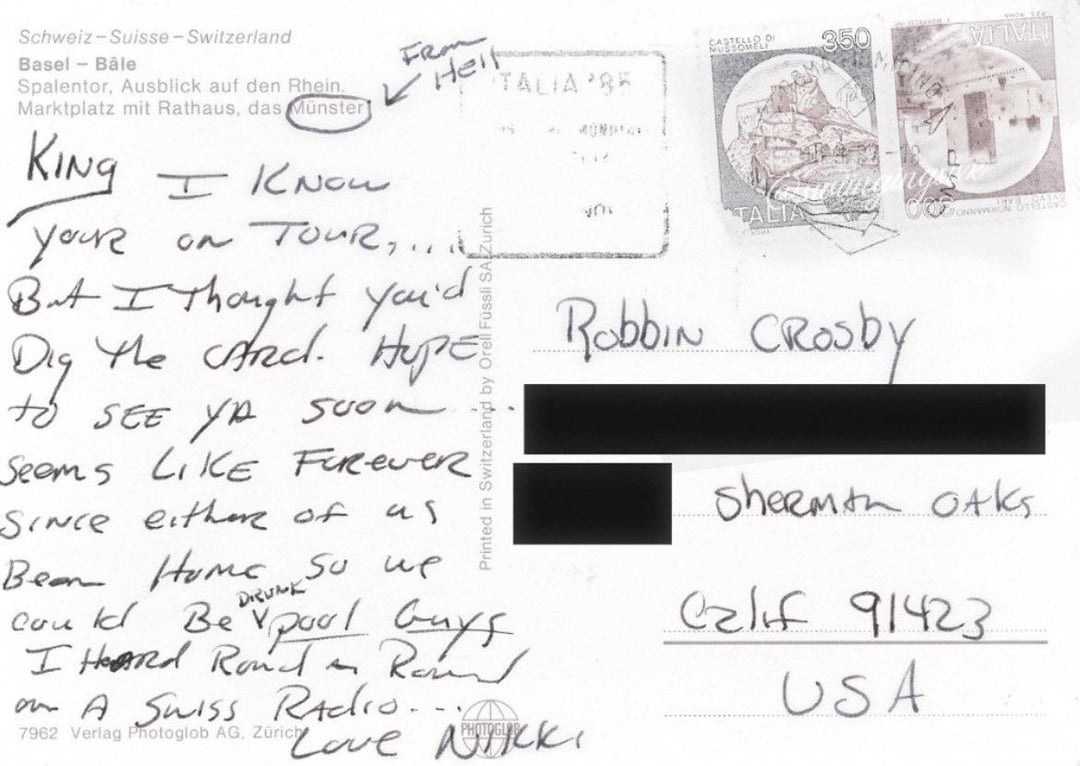 Schweiz – Suisse – Switzerland
Basel – Bâle
Spalentor, Ausblick auf den Rhein.
Marktplatz mit Rathaus, das Münster
From
Hell
KING I KNOW
YOUR ON TOUR,...
But I Thought you'd
Dig the CARD. HOPE
to SEE YA SOON ...
Seems LIKE FOREVER
SINCE either of us
Been Home so we
could Be DRUNK pool Guys
I HEARD Round n Round
on A Swiss RADIO...
Love NIKKI
7962 Verlag Photoglob AG, Zürich
PHOTOGLOB
Printed in Switzerland by Orell Füssli SA Zurich
ITALIA '85
CASTELLO DI
MUSSOMELI
350
ITALIA
ROMA
ITALIA
CASTELLO
NORMANNO
SVEVO BARI
Robbin CROSBY
Sherman OAKS
Calif 91423
USA